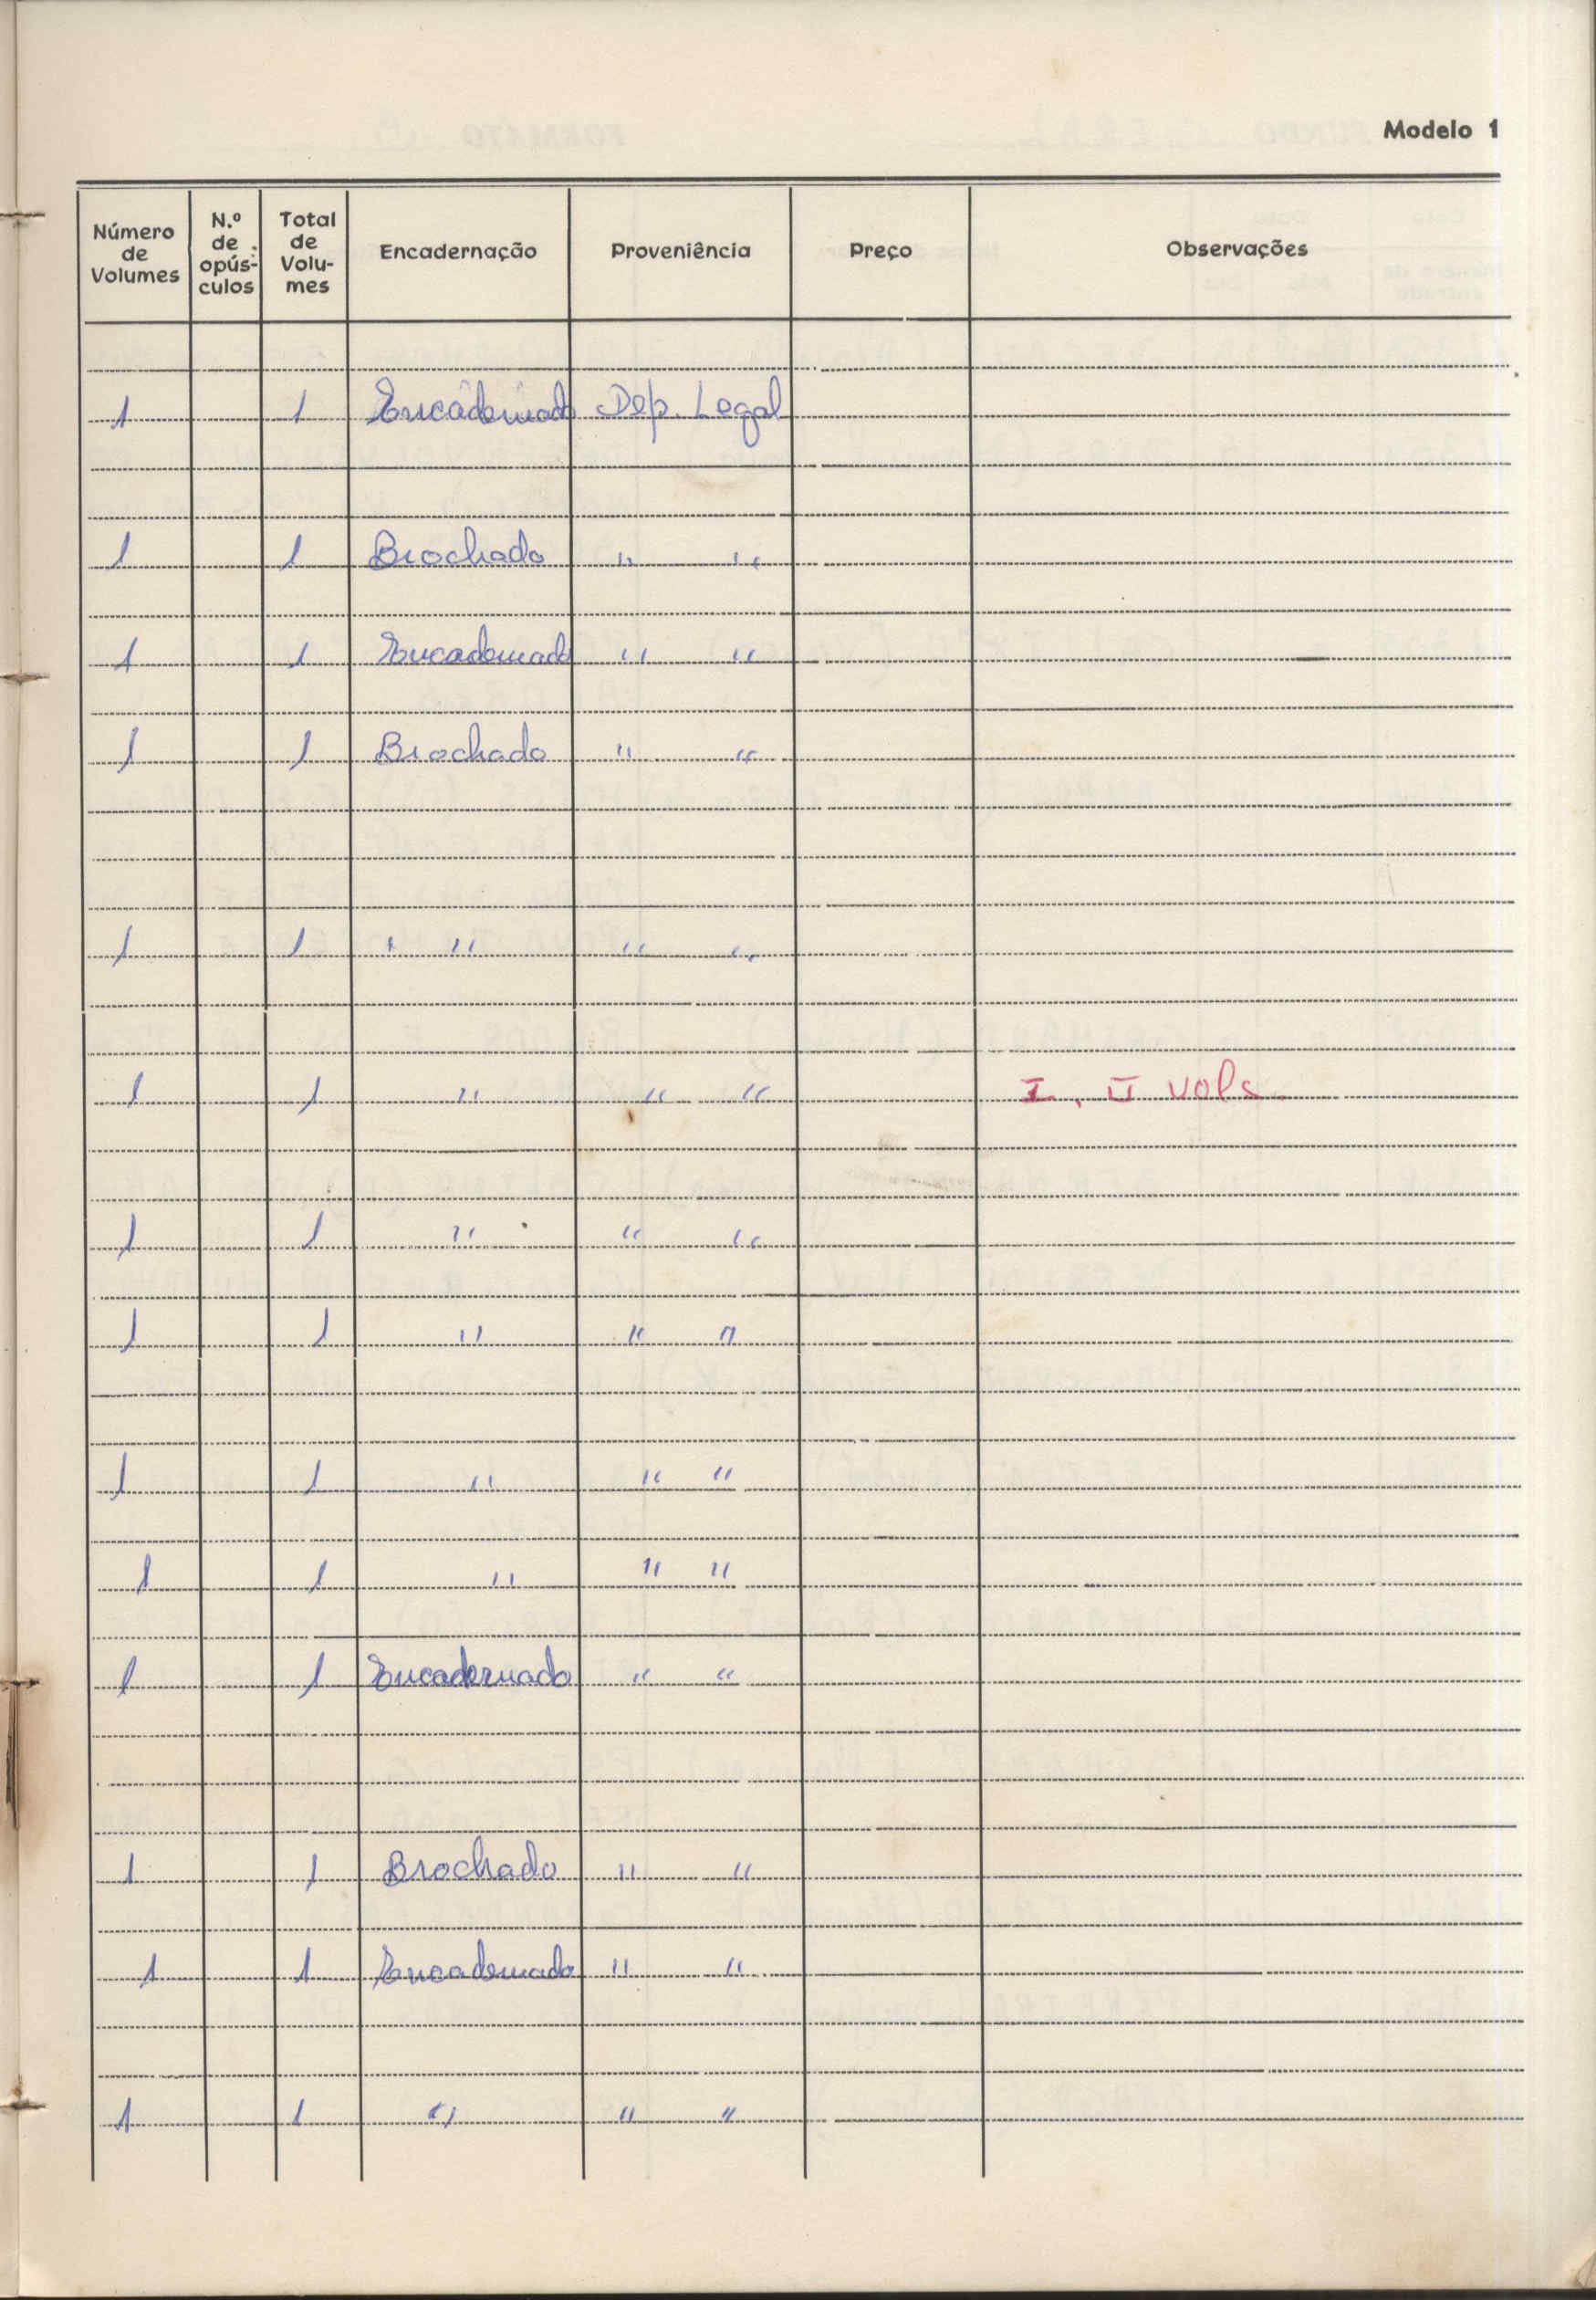 Modelo 1
Número de Volumes | N.º de opús-culos | Total de Volu-mes | Encadernação | Proveniência | Preço | Observações
1 1 Encadernado Dep. Legal
1 1 Brochado " "
1 1 Encadernado " "
1 1 Brochado " "
1 1 " " " "
1 1 " " " I, II vols.
1 1 " " "
1 1 " " "
1 1 " " "
1 1 " " "
1 1 Encadernado " "
1 1 Brochado " "
1 1 Encadernado " "
1 1 " " "